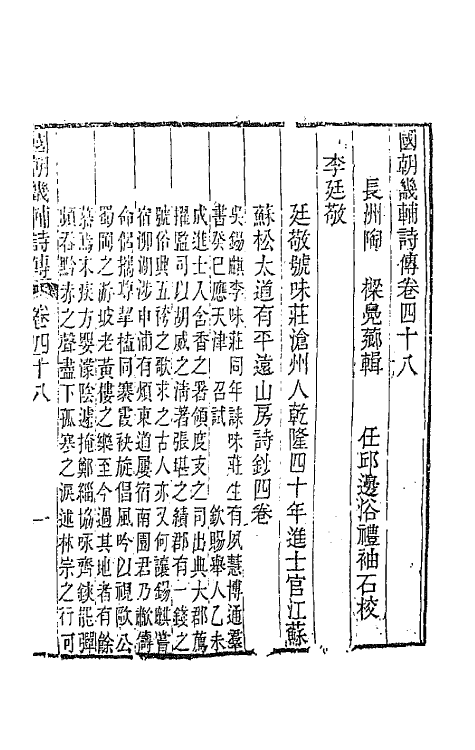 國朝畿輔詩傳卷四十八
長洲陶 樑鳧薌輯 任邱邊浴禮袖石校
李廷敬
廷敬號味莊滄州人乾隆四十年進士官江蘇
蘇松太道有平遠山房詩鈔四卷
吳錫麒李味莊同年誄味莊生有夙慧博通羣
書癸巳應天津 召試 欽賜舉人乙未
成進士入含香之署領度支之司出典大郡薦
擢監司以胡威之清著張堪之績郡有一錢之
號俗興五袴之歌求之古人亦又何讓錫麒嘗
宿泖湖涉申浦有煩東道屢宿南園君乃敝儔
命侶攜尊挈榼同褰霞袂旋倡風吟以視歐公
蜀岡之游坡老黃樓之樂至今過其地者有餘
慕焉木痰方嬰濛陰遽掩鄭緇協咏齊鋏罷彈
頻添黔赤之聲盡下孤寒之淚述林宗之行可
國朝畿輔詩傳 卷四十八 一